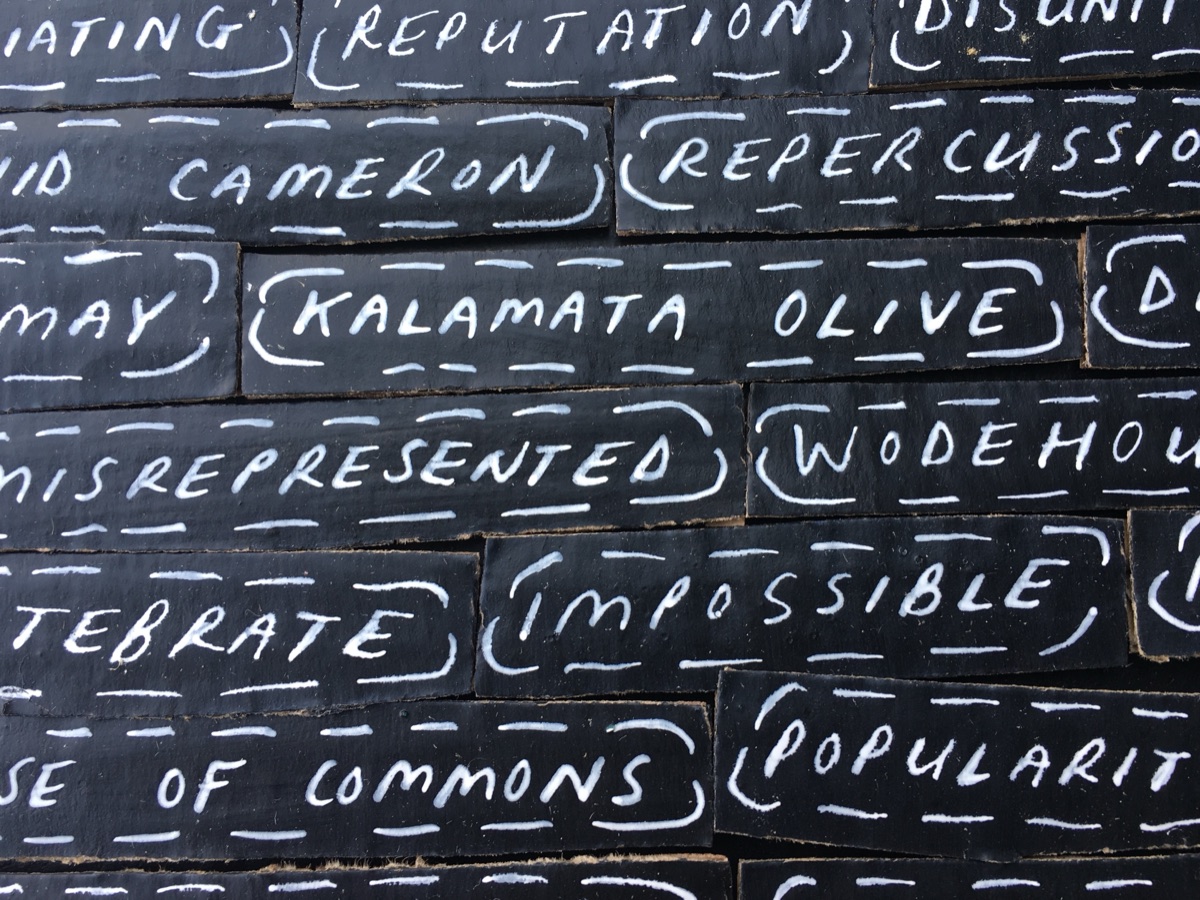 IATING REPUTATION DISUNIT
ID CAMERON REPERCUSSIO
MAY KALAMATA OLIVE D
MISREPRESENTED WODEHOU
TEBRATE IMPOSSIBLE
SE OF COMMONS POPULARIT